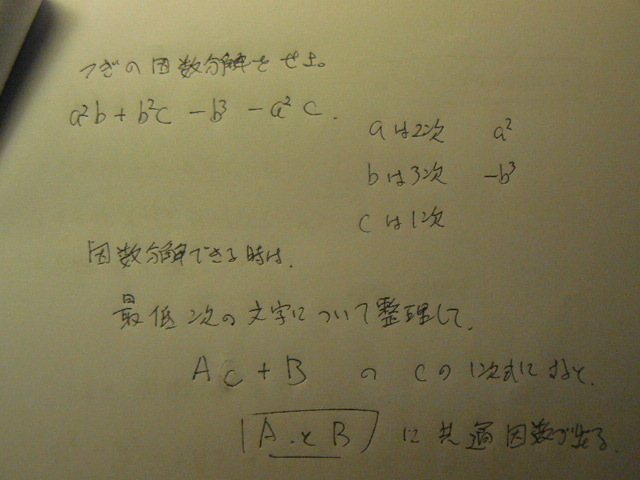 つぎの因数分解をせよ。
a²b + b²c - b³ - a²c.
aは2次 a²
bは3次 -b³
cは1次
因数分解できる時は、
最低次の文字について整理して、
Ac + B の cの1次式にすると、
AとBに共通因数が出る。